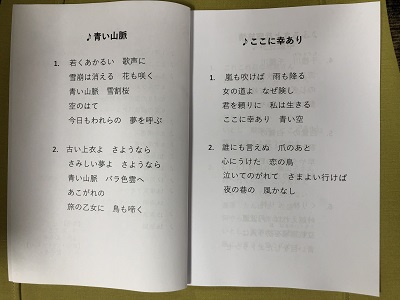 ♪青い山脈
1. 若くあかるい 歌声に
雪崩は消える 花も咲く
青い山脈 雪割桜
空のはて
今日もわれらの 夢を呼ぶ
2. 古い上衣よ さようなら
さみしい夢よ さようなら
青い山脈 バラ色雲へ
あこがれの
旅の乙女に 鳥も啼く
♪ここに幸あり
1. 嵐も吹けば 雨も降る
女の道よ なぜ険し
君を頼りに 私は生きる
ここに幸あり 青い空
2. 誰にも言えぬ 爪のあと
心にうけた 恋の鳥
泣いてのがれて さまよい行けば
夜の巷の 風かなし